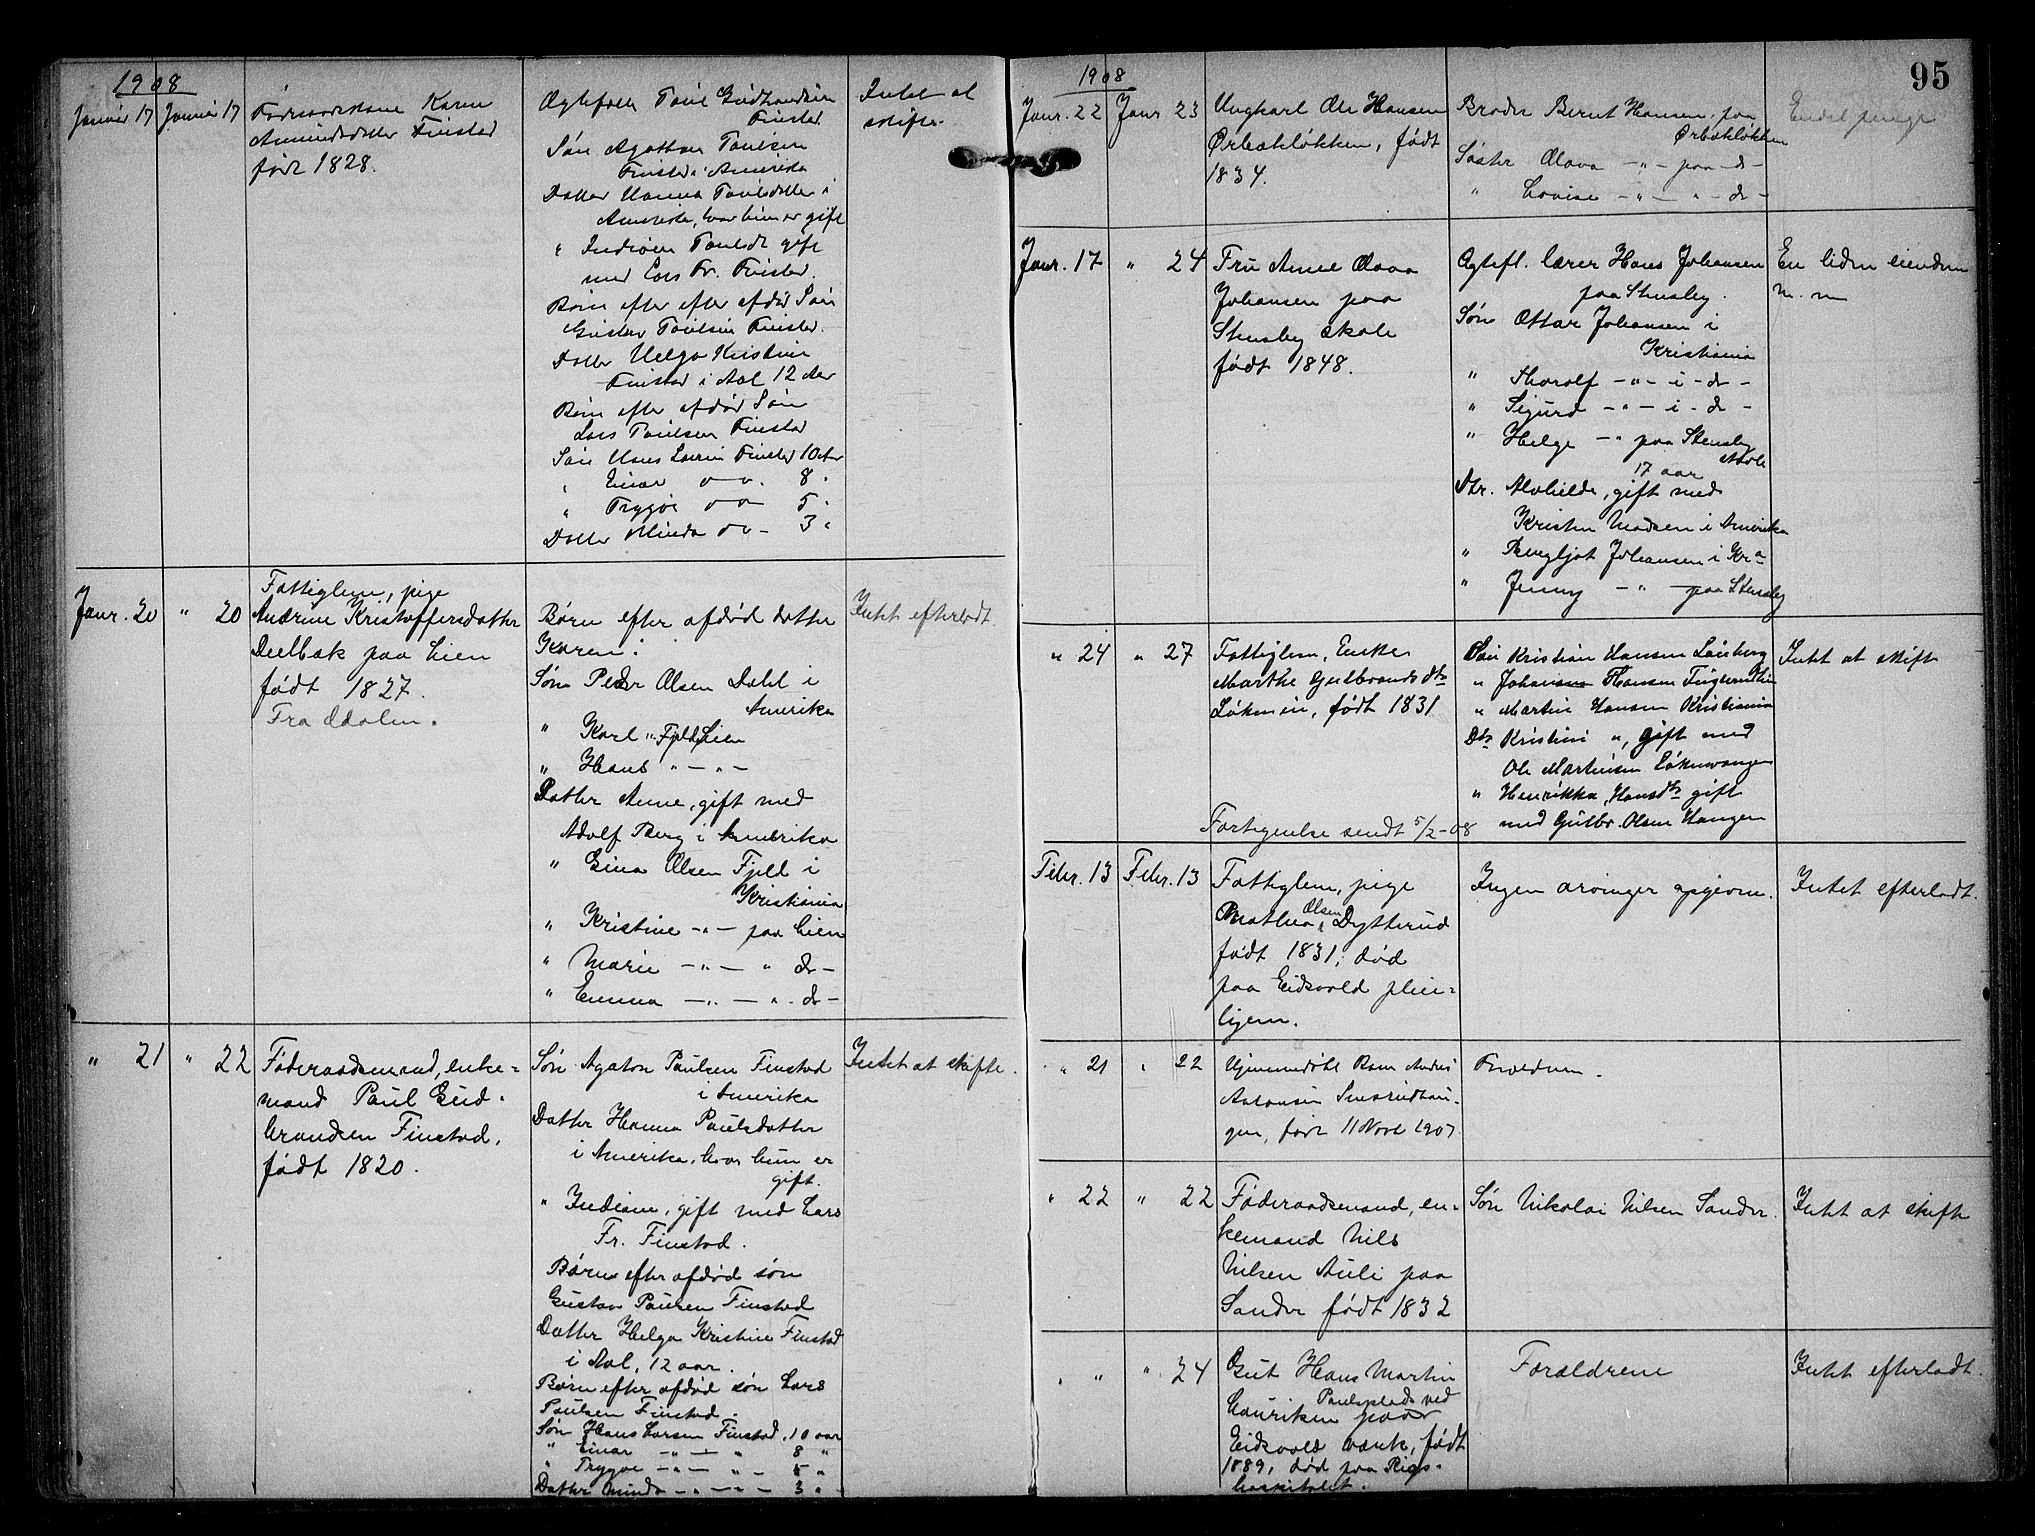 1908
Januar 17 Januar 17
Føderaadskone Karen
Amundsdatter Finstad
født 1828.
Ægtefælle Paul Gudbrandsen
Finstad
Søn Agathon Paulsen
Finstad i Amerika
Datter Hanna Paulsdatter i
Amerika, hvor hun er gift
" Indiane Paulsdt gift
med Lars Fr. Finstad.
Børn efter afdød Søn
Gustav Paulsen Finstad.
Datter Helga Kristine
Finstad i Aal 12 Aar
Børn efter afdød Søn
Lars Paulsen Finstad
Søn Hans Larsen Finstad 10 Aar
" Einar 8 "
" Trygve 5 "
Datter Minda 3 "
Intet at
skifte.
Janr. 20 " 20
Fattiglem, pige
Andrine Kristoffersdatter
Deelbæk paa Lien
født 1827.
Fra Odalen.
Børn efter afdød datter
Karen:
Søn Peder Olsen Dahl i
Amerika
" Karl " Fjeld Lien
" Hans " - " -
Datter Anne, gift med
Adolf Berg i Amerika
" Gina Olsen Fjeld i
Kristiania
" Kristine - " - paa Lien
" Marie - " - " do -
" Emma - " - " do -
Intet efterladt.
" 21 " 22
Føderaadsmand, enke=
mand Paul Gud-
brandsen Finstad,
født 1820.
Søn Agaton Paulsen Finstad
i Amerika
Datter Hanna Paulsdatter
i Amerika, hvor hun er
gift.
" Indiane, gift med Lars
Fr. Finstad.
Børn efter afdød søn
Gustav Paulsen Finstad
Datter Helga Kristine Finstad
i Aal, 12 aar.
Børn efter afdød søn Lars
Paulsen Finstad.
Søn Hans Larsen Finstad, 10 aar
" Einar - " - " 8 "
" Trygve - " - " - 5 "
Datter Minda - " - " - 3 " -
Intet at skifte.
95
1908
Janr. 22 Janr. 23
Ungkarl Ole Hansen
Ørbækløkken, født
1834.
Broder Bernt Hansen paa
Ørbækløkken
Søster Olava - " - paa - do -
" Lovise - " - " - do -
Endel penge
Janr. 17 " 24
Fru Anne Olava
Johansen paa
Stensby skole
født 1848.
Ægtef. lærer Hans Johansen
paa Stensby.
Søn Ottar Johansen i
Kristiania
" Thorolf - " - i - do -
" Sigurd - " - i - do -
" Helge - " paa Stensby
skole
17 aar
Dtr. Alvhilde, gift med
Kristen Madsen i Amerika
" Bergljot Johansen i Kra
" Jenny - " - paa Stensby
En liden eiendom
m. m
" 24 " 27
Fattiglem, Enke
Marthe Gulbrands dtr
Løkmoen, født 1831
Fortegnelse sendt 5/2-08
Søn Kristian Hansen
" Johannes Hansen
" Martin Hansen Kristiania
Dtr Kristine ", gift med
Ole Martinsen
" Henrikka Hansdtr gift
med Gulbr. Olsen Haugen
Intet at skifte
Febr. 13 Febr. 13
Fattiglem, pige
Olsen
Mathea Dytterud
født 1831, død
paa Eidsvold pleie=
hjem.
Ingen arvinger opgivne.
Intet efterladt.
" 21 " 22
Hjemmedøbt Barn Andreas
Aaronsen
født 11 Novb 1907.
Forældrene.
" 22 " 22
Føderaadsmand, en=
kemand Nils
Nilsen Auli paa
Sander født 1832
Søn Nikolai Nilsen Sander.
Intet at skifte
" " " 24
Gut Hans Martin
Paulsplads ved
Lauritsen paa
Eidsvold værk, født
1889, død paa Rigs-
hospitalet.
Forældrene
Intet efterladt.